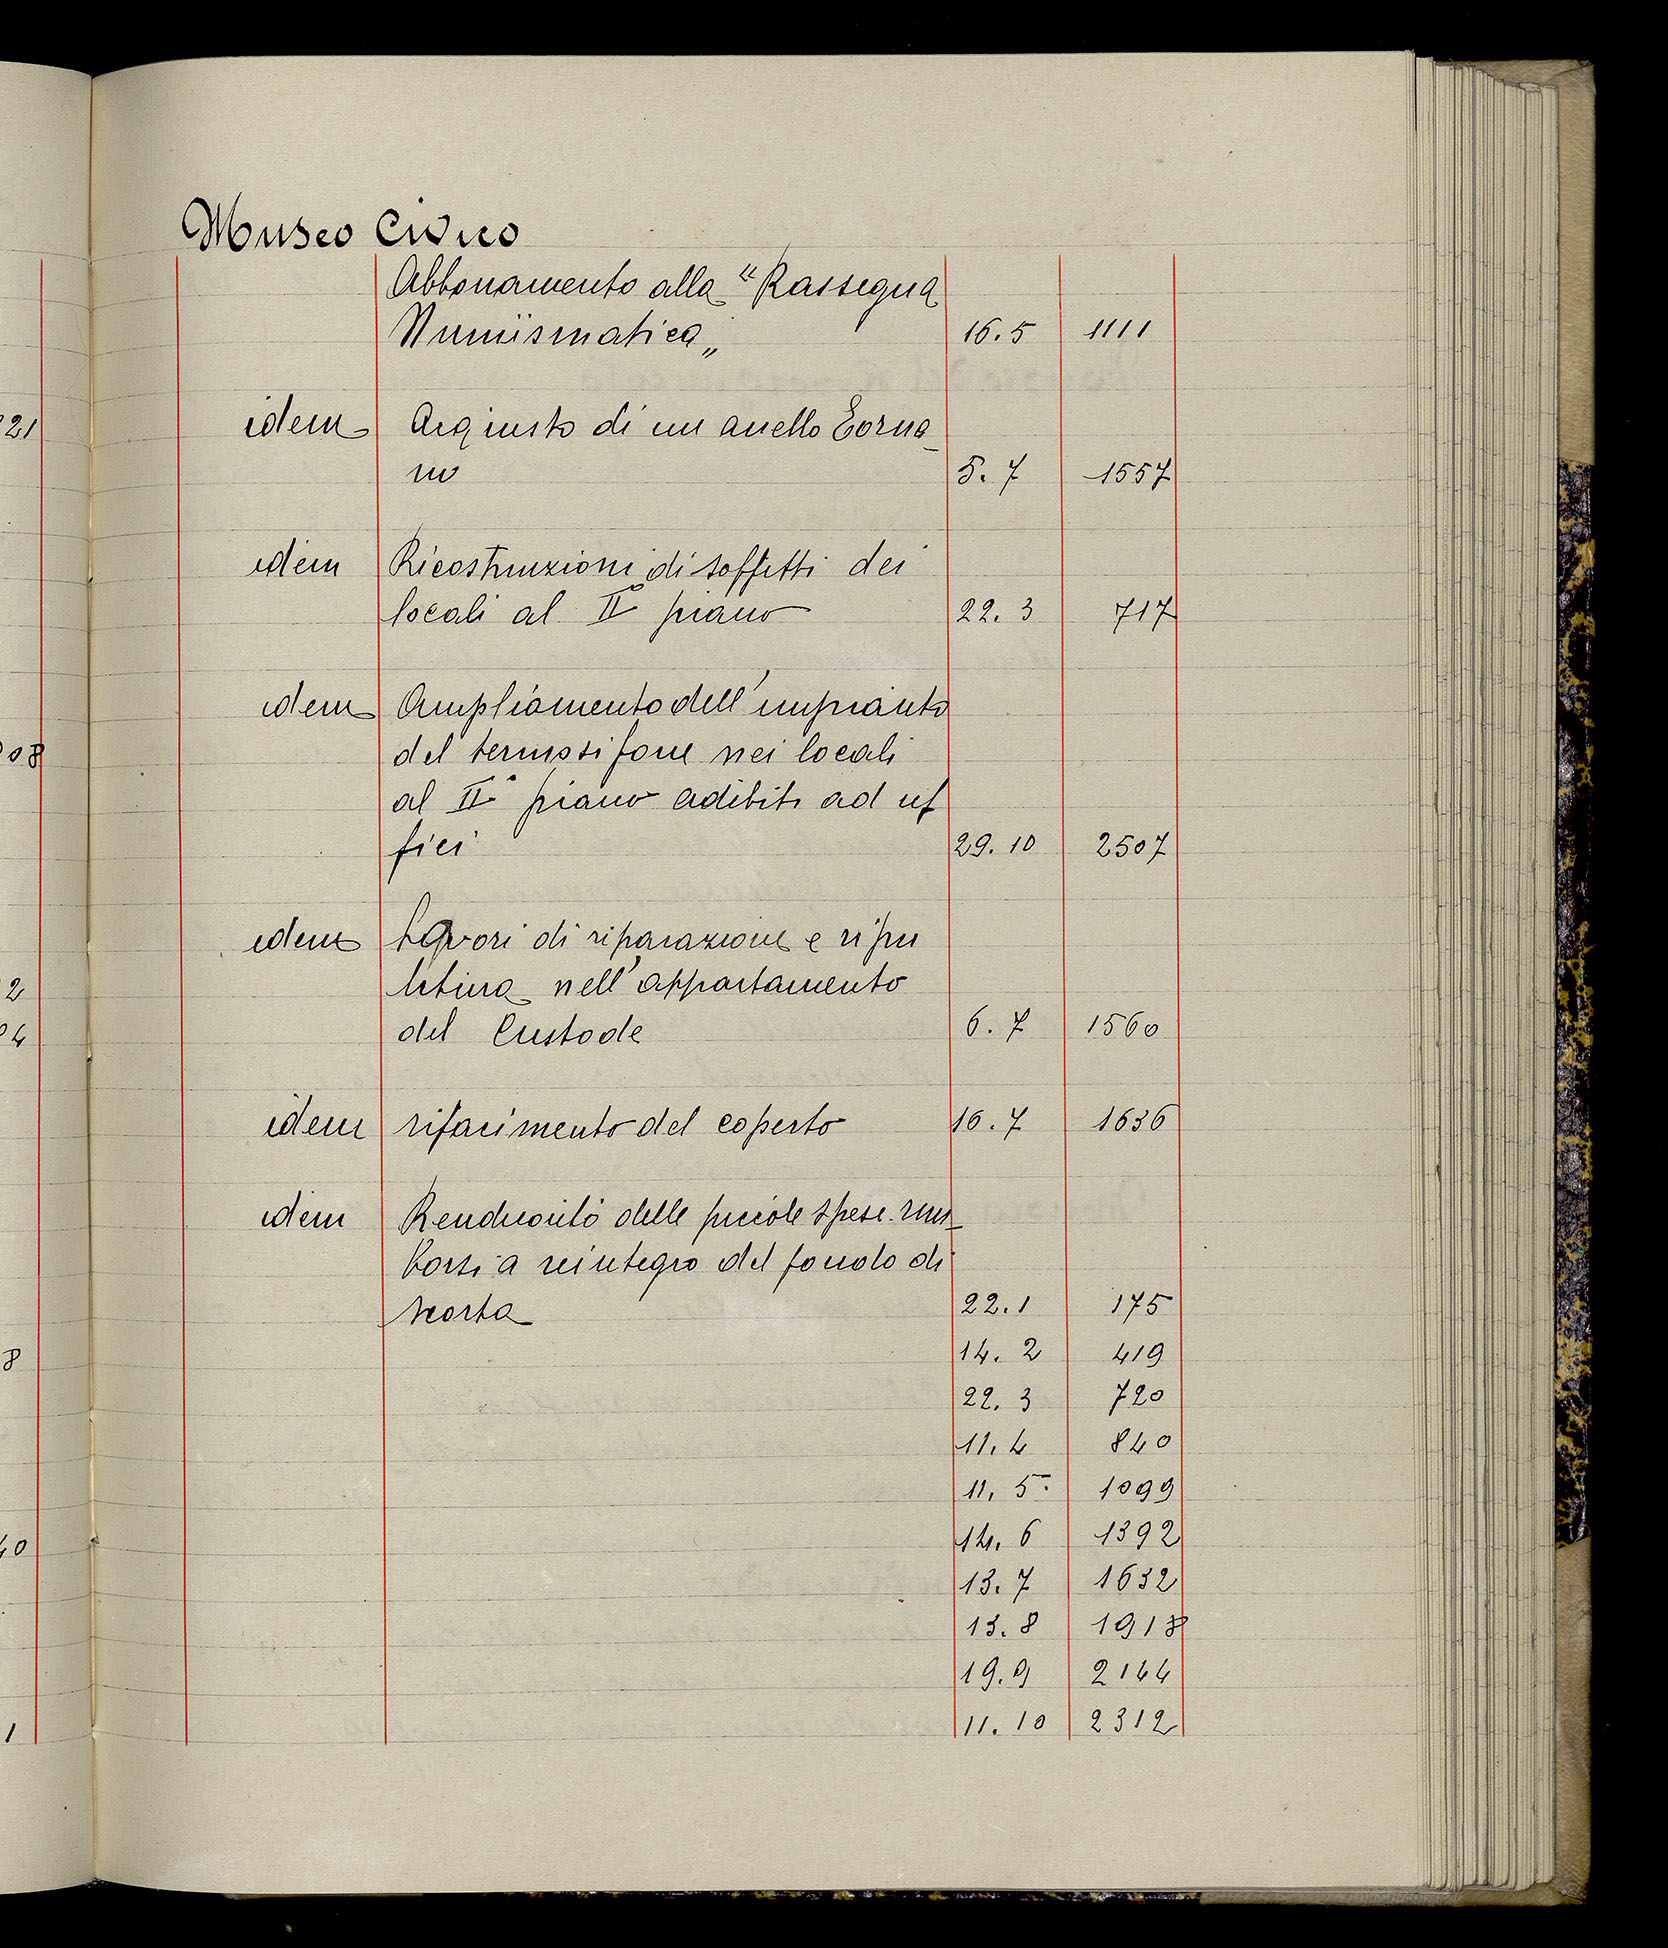 Museo Civico
Abbonamento alla "Rassegna
Numismatica„ 16.5 1111
21
idem Acquisto di un anello Roma_
no 5. 7 1557
idem Ricostruzioni di soffitti dei
locali al II° piano 22. 3 717
idem Ampliamento dell'impianto
08 del termosifone nei locali
al II° piano adibiti ad uf
fici 29. 10 2507
idem Lavori di riparazione e ripu
2 litura nell'appartamento
04 del Custode 6. 7 1560
idem rifacimento del coperto 16. 7 1636
idem Rendiconto delle piccole spese. rim_
borsi a reintegro del fondo di
scorta 22. 1 175
8 14. 2 419
22. 3 720
11. 4 840
11. 5. 1099
40 14. 6 1392
13. 7 1632
13. 8 1918
19. 9 2144
1 11. 10 2312